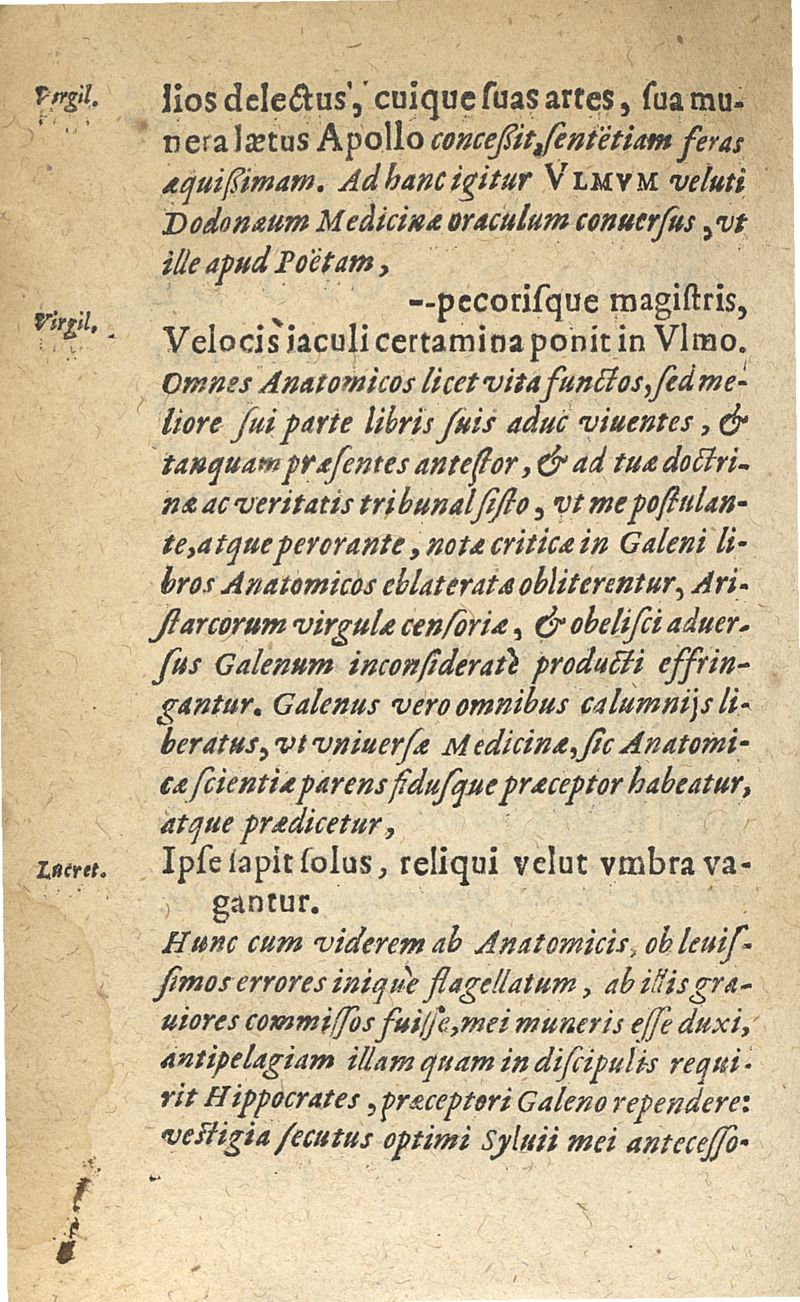 Virgil.
lios delectus, cuique suas artes, sua mu-
nera lætus Apollo conceßit, sentẽtiam feras
æquißimam. Ad hanc igitur VLMVM veluti
Dodonæum Medicinæ oraculum conuersus, vt
ille apud Poëtam,
--pecorisque magistris,
Virgil.
Velocis iaculi certamina ponit in Vlmo.
Omnes Anatomicos licet vita functos, sed me-
liore sui parte libris suis aduc viuentes, &
tanquam præsentes antestor, & ad tuæ doctri-
næ ac veritatis tribunal sisto, vt me postulan-
te, atque perorante, notæ criticæ in Galeni li-
bros Anatomicos eblateratæ obliterentur, Ari-
starcorum virgulæ censoriæ, & obelisci aduer-
sus Galenum inconsideratè producti effrin-
gantur. Galenus vero omnibus calumnijs li-
beratus, vt vniuersæ Medicinæ, sic Anatomi-
cæ scientiæ parens fidusque præceptor habeatur,
atque prædicetur,
Lucret.
Ipse sapit solus, reliqui velut vmbra va-
gantur.
Hunc cum viderem ab Anatomicis, ob leuis-
simos errores iniquè flagellatum, ab illis gra-
uiores commissos fuisse, mei muneris esse duxi,
antipelagiam illam quam in discipulis requi-
rit Hippocrates, præceptori Galeno rependere:
vestigia secutus optimi Syluii mei antecesso-